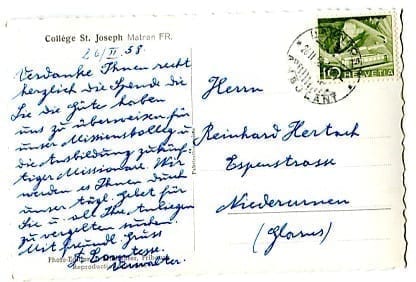 Collège St. Joseph Matran FR.
26/II. 58.
Verdanke Ihnen recht
herzlich die Spende die
Sie die Güte haben
uns zu überweisen für
unser Missionskolleg u.
die Ausbildung zukünf-
tiger Missionare. Wir
werden es Ihnen durch
unser tägl. Gebet für
Sie u. all Ihre Anliegen
zu vergelten suchen.
Mit freundl. Gruss
Verwalter.
Photo-Edition
Reproduction
HELVETIA
10
AMBULANT
Herrn
Reinhard Hertach
Espenstrasse
Niederurnen
(Glarus)